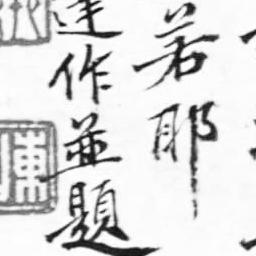 若耶
達作並題
陳